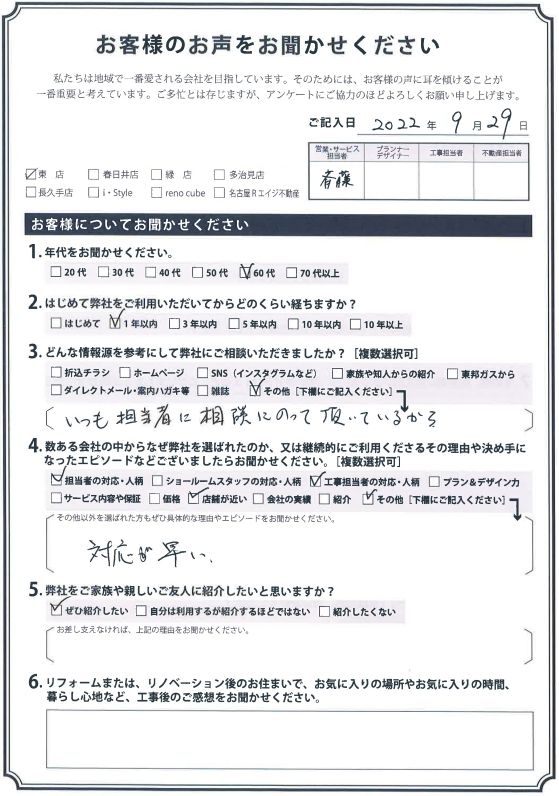 お客様のお声をお聞かせください
私たちは地域で一番愛される会社を目指しています。そのためには、お客様の声に耳を傾けることが
一番重要と考えています。ご多忙とは存じますが、アンケートにご協力のほどよろしくお願い申し上げます。
ご記入日 2022 年 9 月 29 日
営業・サービス担当者 プランナーデザイナー 工事担当者 不動産担当者
斉藤
☑東 店 □春日井店 □緑 店 □多治見店
□長久手店 □i・Style □reno cube □名古屋Rエイジ不動産
お客様についてお聞かせください
1. 年代をお聞かせください。
□20代 □30代 □40代 □50代 ☑60代 □70代以上
2. はじめて弊社をご利用いただいてからどのくらい経ちますか?
□はじめて ☑1年以内 □3年以内 □5年以内 □10年以内 □10年以上
3. どんな情報源を参考にして弊社にご相談いただきましたか?[複数選択可]
□折込チラシ □ホームページ □SNS(インスタグラムなど) □家族や知人からの紹介 □東邦ガスから
□ダイレクトメール・案内ハガキ等 □雑誌 ☑その他[下欄にご記入ください]
いつも担当者に相談にのって頂いているから
4. 数ある会社の中からなぜ弊社を選ばれたのか、又は継続的にご利用くださるその理由や決め手に
なったエピソードなどございましたらお聞かせください。[複数選択可]
☑担当者の対応・人柄 □ショールームスタッフの対応・人柄 ☑工事担当者の対応・人柄 □プラン&デザイン力
□サービス内容や保証 □価格 ☑店舗が近い □会社の実績 □紹介 ☑その他[下欄にご記入ください]
その他以外を選ばれた方もぜひ具体的な理由やエピソードをお聞かせください。
対応が早い、
5. 弊社をご家族や親しいご友人に紹介したいと思いますか?
☑ぜひ紹介したい □自分は利用するが紹介するほどではない □紹介したくない
お差し支えなければ、上記の理由をお聞かせください。
6. リフォームまたは、リノベーション後のお住まいで、お気に入りの場所やお気に入りの時間、
暮らし心地など、工事後のご感想をお聞かせください。